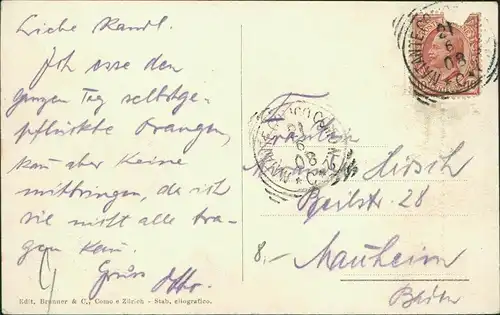 Liebe Kandl.
Ich esse den
ganzen Tag selbstge-
pflückte Orangen,
kan aber keine
mitbringen, da ich
sie nicht alle tra-
gen kan.
Gruss Otto.
Fräulein
Hirsch
Beilstr. 28
8.- Manheim
Baden
21
6
08
21
6
08
*C*
Edit. Brunner & C., Como e Zürich - Stab. eliografico.